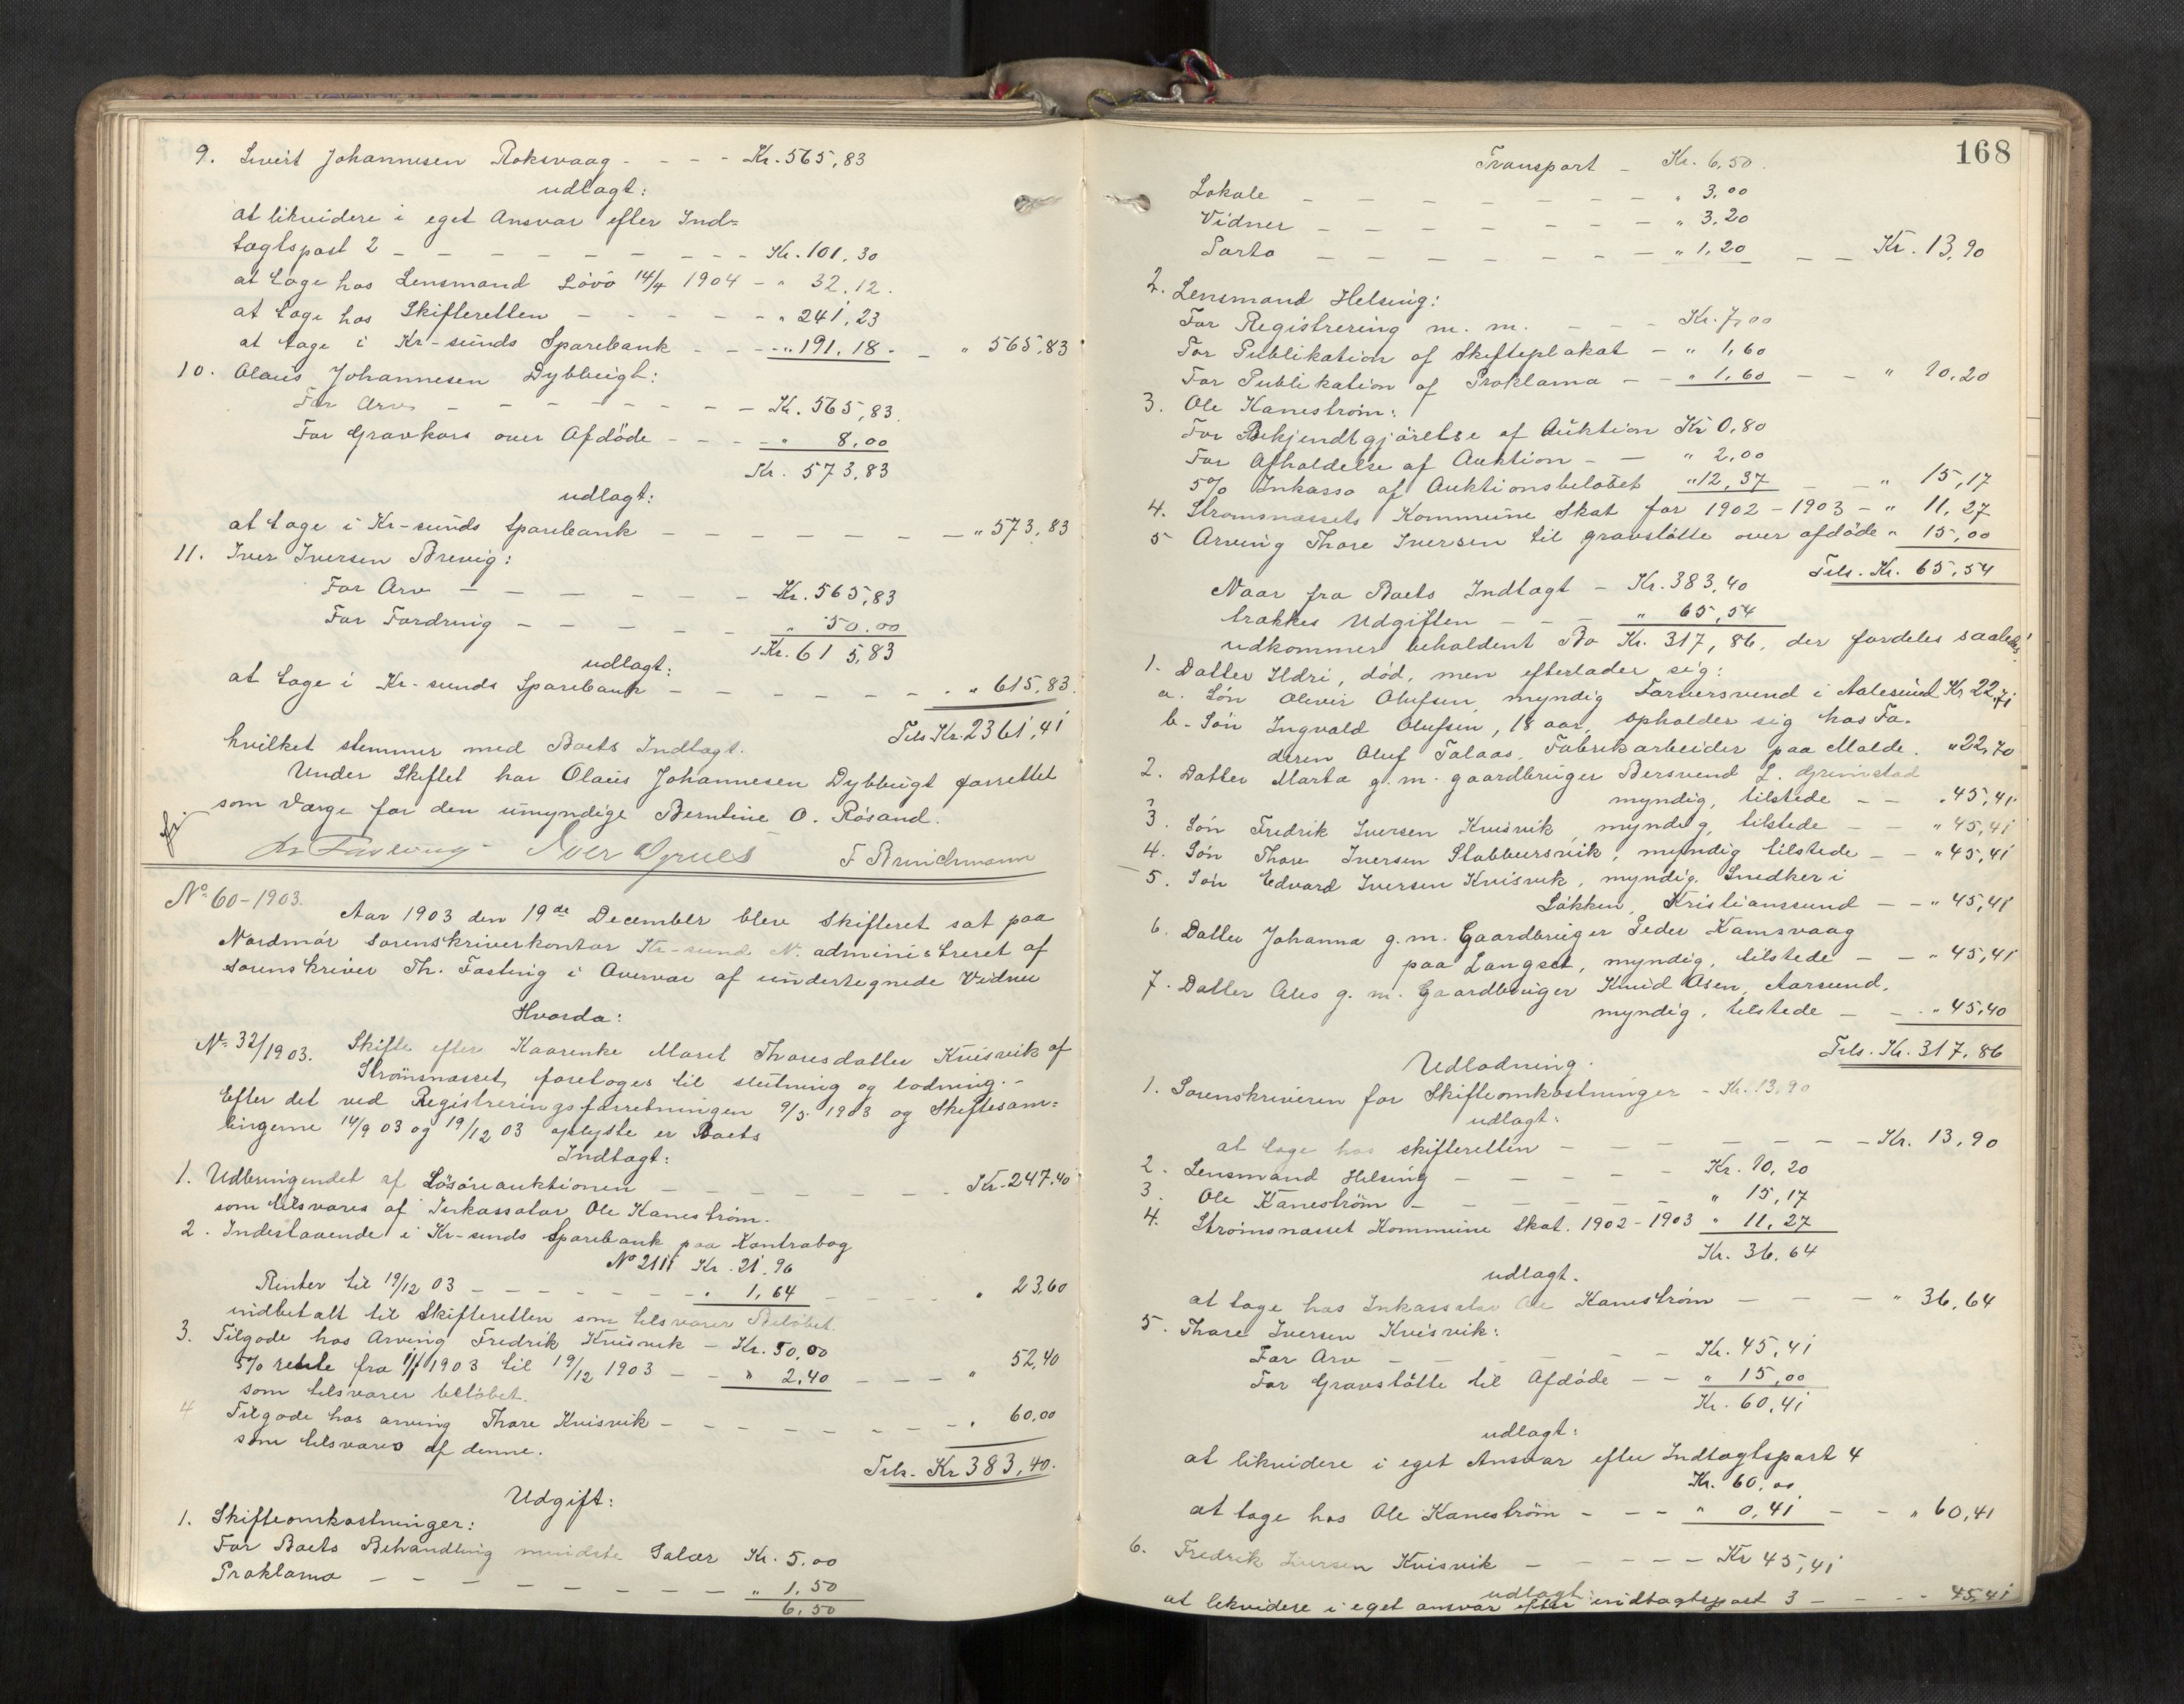 9. Sivert Johannesen Roksvaag - - - - Kr. 565,83
udlagt:
at likvidere i eget Ansvar efter Ind=
tægtspost 2 - - - - - - - - - - Kr. 101,30
at tage hos Lensmand Lövö 14/4 1904 - „ 32.12.
at tage hos Skifteretten - - - - - - „ 241,23
at tage i Kr-sunds Sparebank - - - - „ 191.18. - „ 565,83
10. Olaus Johannesen Dybbugt:
For Arv - - - - - - - - - Kr. 565,83.
For Gravkors over Afdöde - - - - „ 8,00
Kr. 573,83
udlagt:
at tage i Kr-sunds Sparebank - - - - - - - „ 573,83
11. Iver Iversen Brevig:
For Arv - - - - - - - Kr. 565,83
For Fordring - - - - - - „ 50.00
Kr. 615,83
udlagt:
at tage i Kr-sunds Sparebank - - - - - - - „ 615,83.
Tils. Kr. 2361,41
hvilket stemmer med Boets Indtægt.
Under Skiftet har Olaus Johannesen Dybbugt forrettet
som Værge for den umyndige Berntine O. Rösand.
Th Fasting Iver Opnes F Brinchmann
No 60-1903.
Aar 1903 den 19de December blev Skifteret sat paa
Nordmör sorenskriverkontor Kr-sund N. administreret af
sorenskriver Th. Fasting i Overvær af undertegnede Vidner
Hvorda:
No 32/1903. Skifte efter Kaarenke Maret Thoresdatter Kvisvik af
Strömsnæsset, foretoges til slutning og lodning. -
Efter det ved Registreringsforretningen 9/5 1903 og Skiftesam=
lingerne 14/9 03 og 19/12 03 oplyste er Boets
Indtægt:
1. Udbringendet af Lösöreauktionen - - - - - - - Kr. 247.40
som tilsvares af Inkassator Ole Kaneström.
2. Indestaaende i Kr-sunds Sparebank paa Kontrabog
No 2111 Kr. 21.96
Renter til 19/12 03 - - - - - - - - „ 1,64 - - - - „ 23,60
indbetalt til Skifteretten som tilsvarer Belöbet.
3. Tilgode hos Arving Fredrik Kvisvik - Kr. 50,00
5% rente fra 1/1 1903 til 19/12 1903 - - „ 2,40 - - - „ 52,40
som tilsvarer belöbet.
4 Tilgode hos arving Thore Kvisvik - - - - - - - „ 60,00
som tilsvares af denne.
Tils. Kr 383,40.
Udgift:
1. Skifteomkostninger:
For Boets Behandling mindste Salær Kr. 5.00
Proklama - - - - - - - - - „ 1.50
6,50
168
Transport - Kr. 6,50.
Lokale - - - - - - - - „ 3,00
Vidner - - - - - - - - „ 3,20
Porto - - - - - - - - „ 1,20 - - Kr. 13,90
2. Lensmand Helsing:
For Registrering m. m. - - - Kr. 7,00
For Publikation af Skifteplakat - „ 1,60
For Publikation af Proklama - - „ 1,60 - - „ 10,20
3. Ole Kaneström:
For Bekjendtgjörelse af Auktion Kr 0,80
For Afholdelse af Auktion - - „ 2,00
5% Inkasso af Auktionsbelöbet „ 12,37 - - „ 15,17
4. Strömsnæssets Kommune Skat for 1902-1903 - „ 11,27
5 Arving Thore Iversen til gravstötte over afdöde „ 15,00
Tils. Kr. 65,54
Naar fra Boets Indtægt - Kr. 383,40
trækkes Udgiften - - - „ 65,54
udkommer beholdent Bo Kr. 317,86, der fordeles saaledes:
1. Datter Ildri, död, men efterlader sig:
a. Sön Oliver Olufsen, myndig Farversvend i Aalesund Kr 22,71
b. Sön Ingvald Olufsen, 18 aar, opholder sig hos Fa-
deren Oluf Talaas, Fabrikarbeider paa Molde. „ 22,70
2. Datter Marta g. m. gaardbruger Bersvend L. Grimstad
myndig, tilstede - - „ 45,41
3. Sön Fredrik Iversen Kvisvik, myndig, tilstede - - „ 45,41
4. Sön Thore Iversen Stabbursvik, myndig tilstede - - „ 45,41
5. Sön Edvard Iversen Kvisvik, myndig. Snedker i
Lökken, Kristianssund - - „ 45,41
6. Datter Johanna g. m. Gaardbruger Peder Ramsvaag
paa Langset, myndig, tilstede - - „ 45,41
7. Datter Ales g. m. Gaardbruger Knud Osen, Aarsund,
myndig, tilstede - - - „ 45,40
Tils. Kr. 317,86
Udlodning.
1. Sorenskriveren for Skifteomkostninger - Kr. 13,90
udlagt:
at tage hos skifteretten - - - - - - - Kr. 13,90
2. Lensmand Helsing - - - - - Kr. 10,20
3. Ole Kaneström - - - - - - „ 15,17
4. Strömsnæsset Kommune Skat. 1902-1903 „ 11,27
Kr. 36.64
udlagt.
at tage hos Inkassator Ole Kaneström - - - „ 36,64
5. Thore Iversen Kvisvik:
For Arv - - - - - - Kr. 45,41
For Gravstötte til Afdöde - - „ 15,00
Kr. 60,41
udlagt:
at likvidere i eget Ansvar efter Indtægtspost 4
Kr. 60,00
at tage hos Ole Kaneström - - - „ 0,41 - - „ 60,41
6. Fredrik Iversen Kvisvik - - - - - Kr 45,41
udlagt:
at likvidere i eget ansvar efter indtægtspost 3 - - - - 45,41